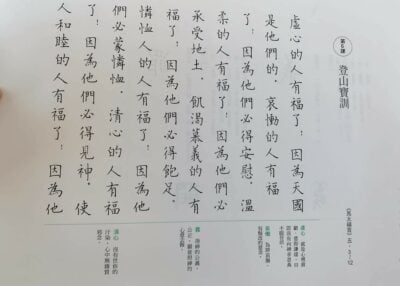 第6課
登山寶訓
(馬太福音) 五·3—12
虛心的人有福了：因為天國
是他們的。哀慟的人有福
了：因為他們必得安慰。溫
柔的人有福了：因為他們必
承受地土。飢渴慕義的人有
福了：因為他們必得飽足。
憐恤人的人有福了：因為他
們必蒙憐恤。清心的人有福
了：因為他們必得見神。使
人和睦的人有福了：因為他
虛心
哀慟 為罪哀傷，
有悔改的意思。
義
清心 沒有世俗的
邪念。